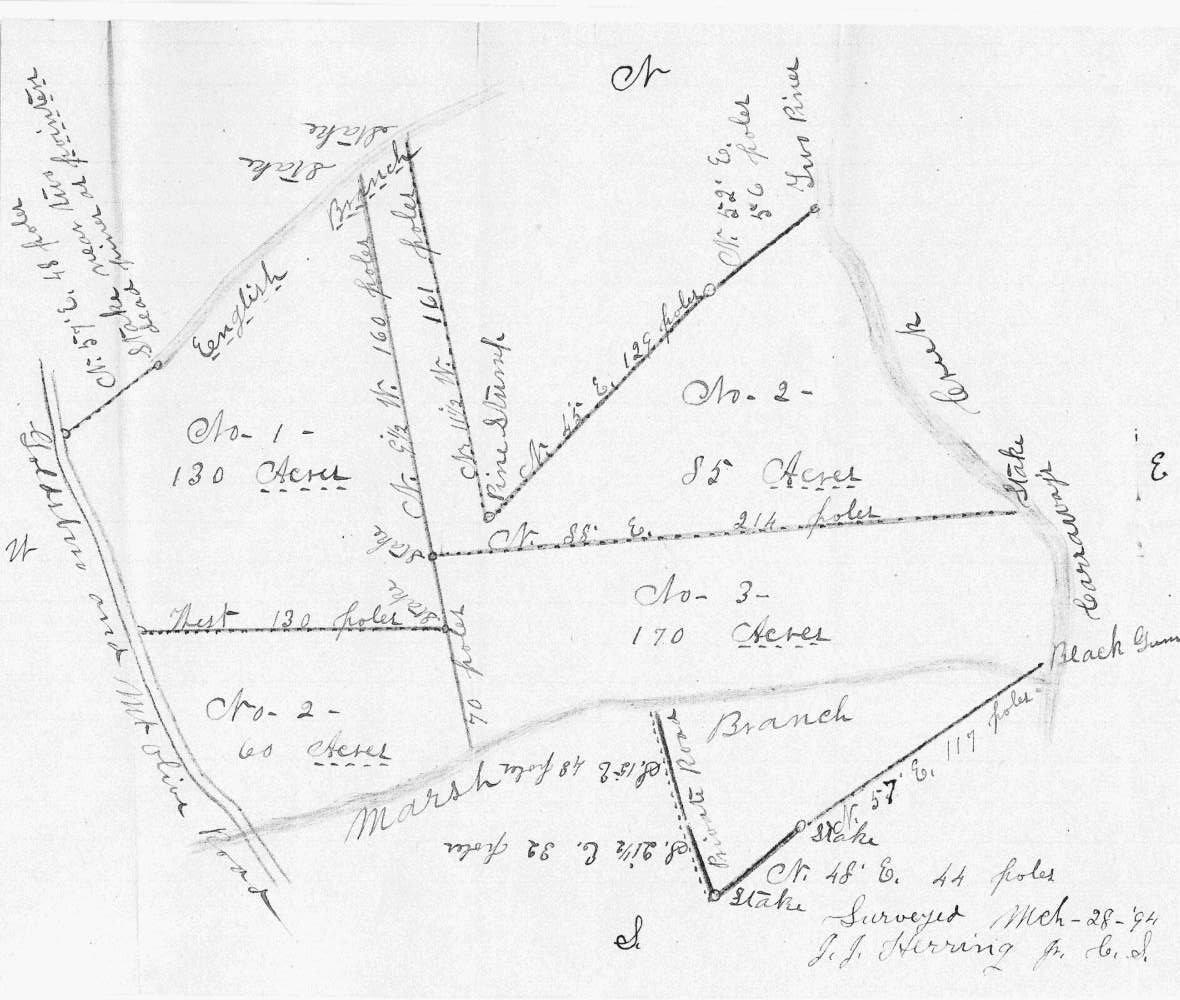 N
N. 57' E. 48 poles
Stake near two pointers
dead pines as
Stake
Stake
Branch
English
N. 52' E.
56 poles
Two Pines
No - 1 -
130 Acres
N. 9½ W. 160 poles
N. 11½ W. 161 poles
Pine Stump
N. 45' E. 129 poles
No - 2 -
85 Acres
Creek
Carraway's
Stake
E
W
Stake
N. 88' E. 214 poles
Goldsboro and Mt Olive Road
West 130 poles
Stake
70 poles
No - 3 -
170 Acres
Black Gum
No - 2 -
60 Acres
Marsh Branch
S. 15' E 48 poles
S. 21½ E. 32 poles
Private Road
N. 57' E. 117 poles
Stake
N. 48' E. 44 poles
Stake
Surveyed Mch - 28 - '94
J. J. Herring Jr. C. S.
S